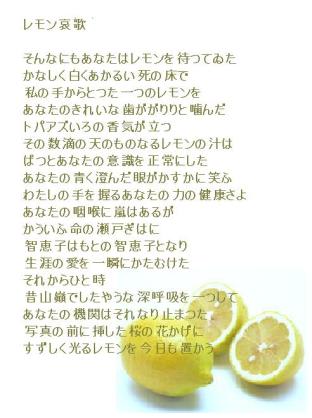 レモン哀歌
そんなにもあなたはレモンを待つてゐた
かなしく白くあかるい死の床で
私の手からとつた一つのレモンを
あなたのきれいな歯ががりりと噛んだ
トパアズいろの香気が立つ
その数滴の天のものなるレモンの汁は
ぱつとあなたの意識を正常にした
あなたの青く澄んだ眼がかすかに笑ふ
わたしの手を握るあなたの力の健康さよ
あなたの咽喉に嵐はあるが
かういふ命の瀬戸ぎはに
智恵子はもとの智恵子となり
生涯の愛を一瞬にかたむけた
それからひと時
昔山巓でしたやうな深呼吸を一つして
あなたの機関はそれなり止まつた
写真の前に挿した桜の花かげに
すずしく光るレモンを今日も置かう